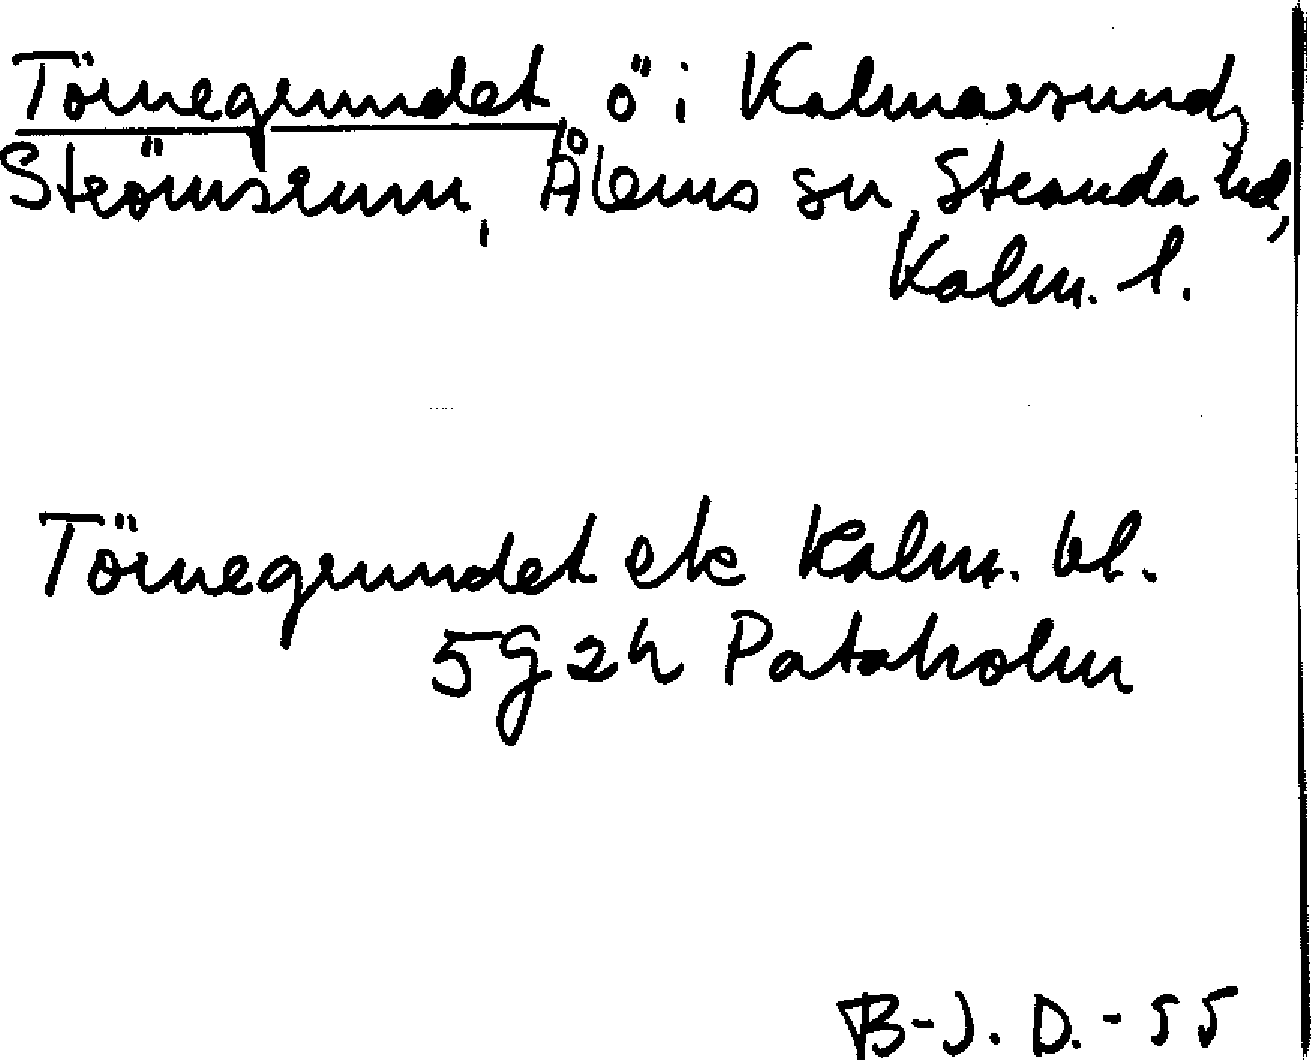 Törnegrundet, ö i Kalmarsund,
Strömsrum, Ålems sn, Stranda hd,
Kalm. l.
Törnegrundet ek Kalm. bl.
5g2h Pataholm
B-J. D. - 55